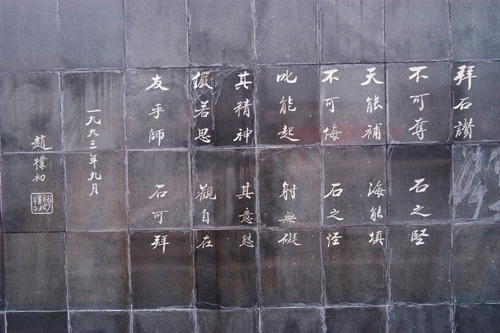 拜石讚
不可奪 石之堅
天能補 海能填
不可侮 石之怪
叱能起 射無礙
其精神 其意態
儼若思 觀自在
友乎師 石可拜
一九九三年九月
趙樸初